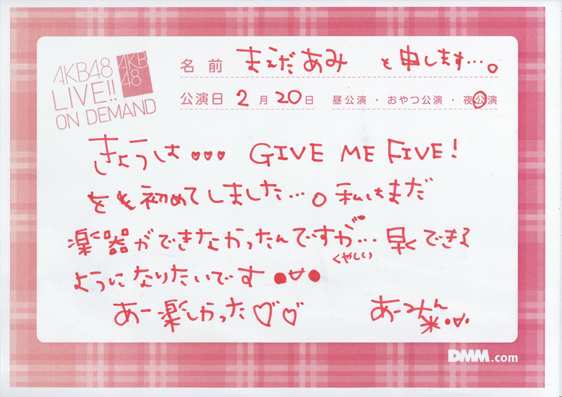 AKB48
LIVE!!
ON DEMAND
AKB
48
名前 まえだあみ と申します…。
公演日 2月20日 昼公演・おやつ公演・夜公演
きょうは♥♥♥ GIVE ME FIVE!
をを初めてしました…。私はまだ
楽器ができなかったんですが…早くできる
くやしい
ようになりたいです
あー楽しかった♡♡
あーみん
DMM.com